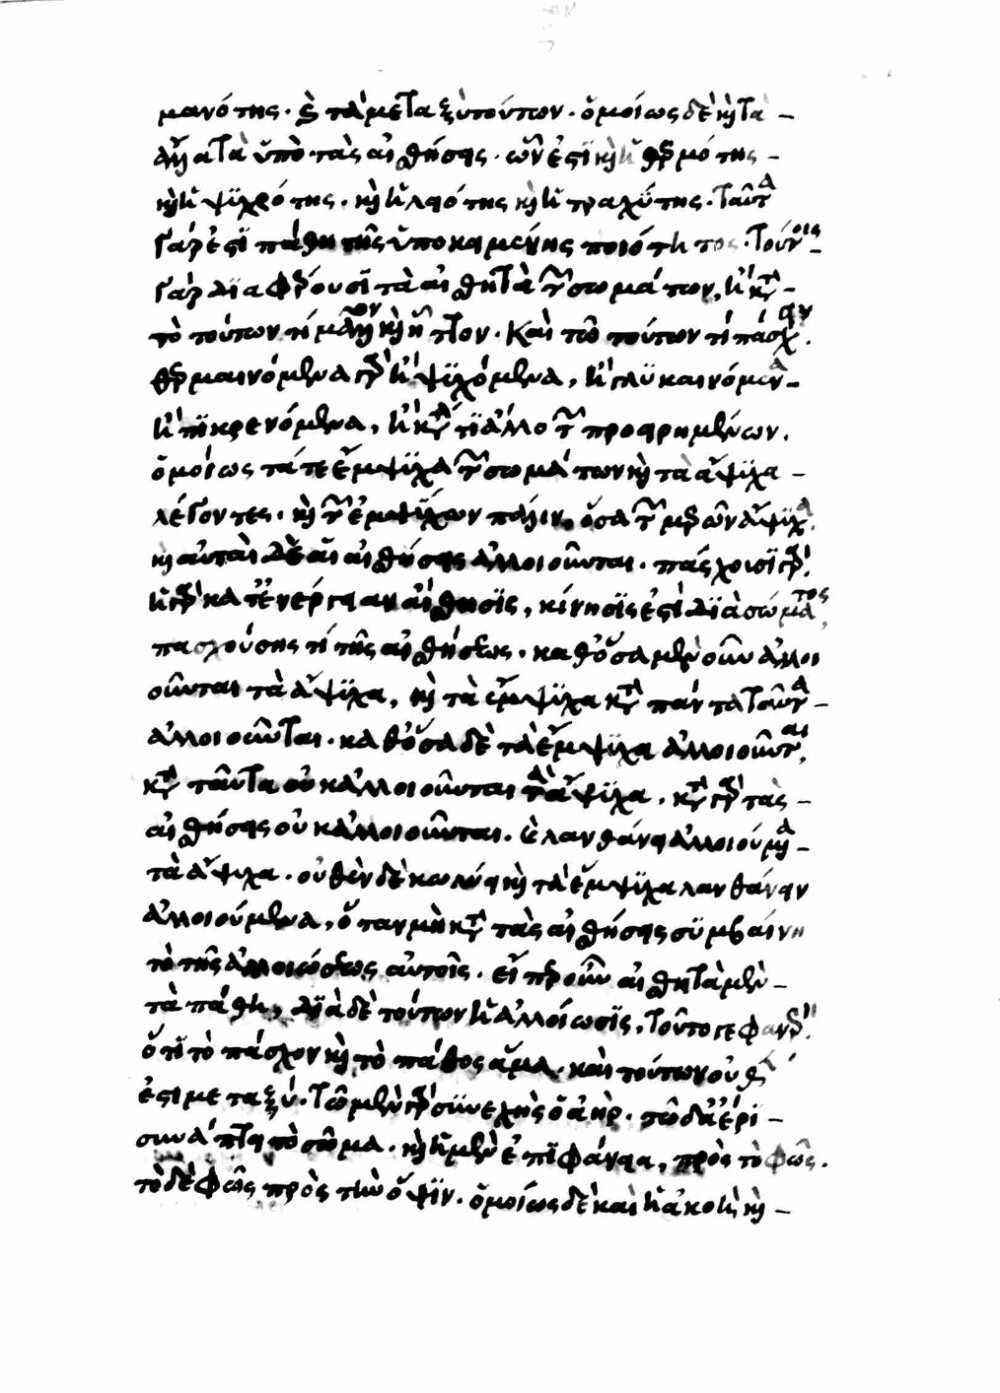 μανότης· καὶ τὰ μεταξὺ τούτων· ὁμοίως δὲ καὶ τὰ –
ἄλλα τὰ ὑπὸ τὰς αἰσθήσεις· ὧν ἐστὶ καὶ ἡ θερμότης –
καὶ ἡ ψυχρότης· καὶ ἡ λειότης καὶ ἡ τραχύτης· ταῦτα
γάρ ἐστι πάθη τῆς ὑποκειμένης ποιότητος· τούτοις –
γὰρ διαφέρουσι τὰ αἰσθητὰ τῶν σωμάτων, ἢ κατὰ –
τὸ τούτων τί μᾶλλον καὶ ἧττον· καὶ τῶ τούτων τί πάσχειν·
θερμαινόμενα γὰρ ἢ ψυχόμενα, ἢ γλυκαινόμενα –
ἢ πικρενόμενα, ἢ κατά τι ἄλλο τῶν προειρημένων.
ὁμοίως τά τε ἔμψυχα τῶν σωμάτων καὶ τὰ ἄψυχα –
λέγοντες· καὶ τῶν ἐμψύχων πάλιν, ὅσα τῶν μερῶν ἄψυχα.
καὶ αὐταὶ δὲ αἱ αἰσθήσεις ἀλλοιοῦνται· πάσχουσι γάρ.
ἡ γὰρ κατ' ἐνέργειαν αἴσθησις, κίνησίς ἐστι διὰ σώματος,
πασχούσης τί τῆς αἰσθήσεως· καθ' ὅσα μὲν οὖν ἀλλοι
οῦνται τὰ ἄψυχα, καὶ τὰ ἔμψυχα κατὰ πάντα ταῦτα –
ἀλλοιοῦνται· καθ' ὅσα δὲ τὰ ἔμψυχα ἀλλοιοῦνται,
κατὰ ταῦτα οὐκ ἀλλοιοῦνται τὰ ἄψυχα· κατὰ γὰρ τὰς –
αἰσθήσεις οὐκ ἀλλοιοῦνται· καὶ λανθάνει ἀλλοιούμενα –
τὰ ἄψυχα· οὐθὲν δὲ κωλύει καὶ τὰ ἔμψυχα λανθάνειν
ἀλλοιούμενα, ὅταν μὴ κατὰ τὰς αἰσθήσεις συμβαίνη
τὸ τῆς ἀλλοιώσεως αὐτοῖς· εἴπερ οὖν αἰσθητὰ μὲν –
τὰ πάθη, διὰ δὲ τούτων ἡ ἀλλοίωσις, τοῦτό γε φανερόν.
ὅτι τὸ πάσχον καὶ τὸ πάθος ἅμα· καὶ τούτων οὐδέν
ἐστι μεταξύ· τῶ μὲν γὰρ συνεχὴς ὁ ἀήρ· τῶ δ' ἀέρι –
συνάπτει τὸ σῶμα· καὶ ἡ μὲν ἐπιφάνεια, πρὸς τὸ φῶς.
τὸ δὲ φῶς πρὸς τὴν ὄψιν· ὁμοίως δὲ καὶ ἡ ἀκοὴ καὶ –